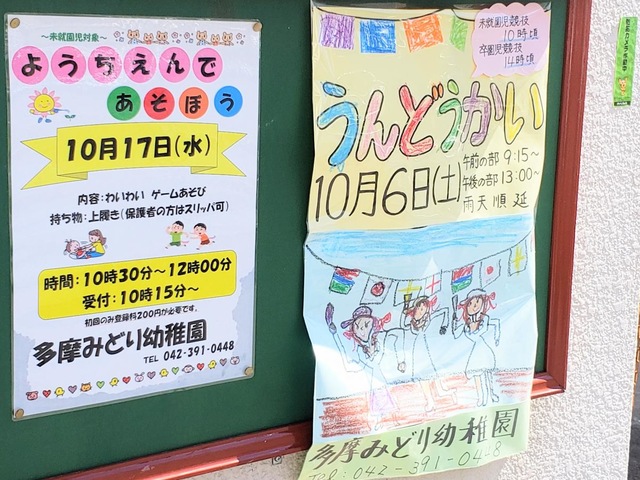 ～未就園児対象～
ようちえんで
あそぼう
10月17日(水)
内容:わいわい ゲームあそび
持ち物:上履き(保護者の方はスリッパ可)
時間:10時30分～12時00分
受付:10時15分～
初回のみ登録料200円が必要です。
多摩みどり幼稚園
TEL 042-391-0448
未就園児競技
10時頃
卒園児競技
14時頃
うんどうかい
10月6日(土)
午前の部 9:15～
午後の部 13:00～
雨天順延
多摩みどり幼稚園
TEL:042-391-0448